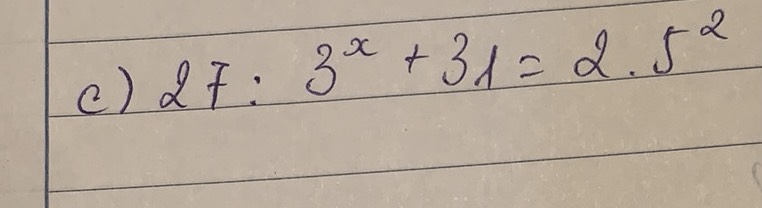 c) 27 : 3ˣ + 31 = 2 . 5²